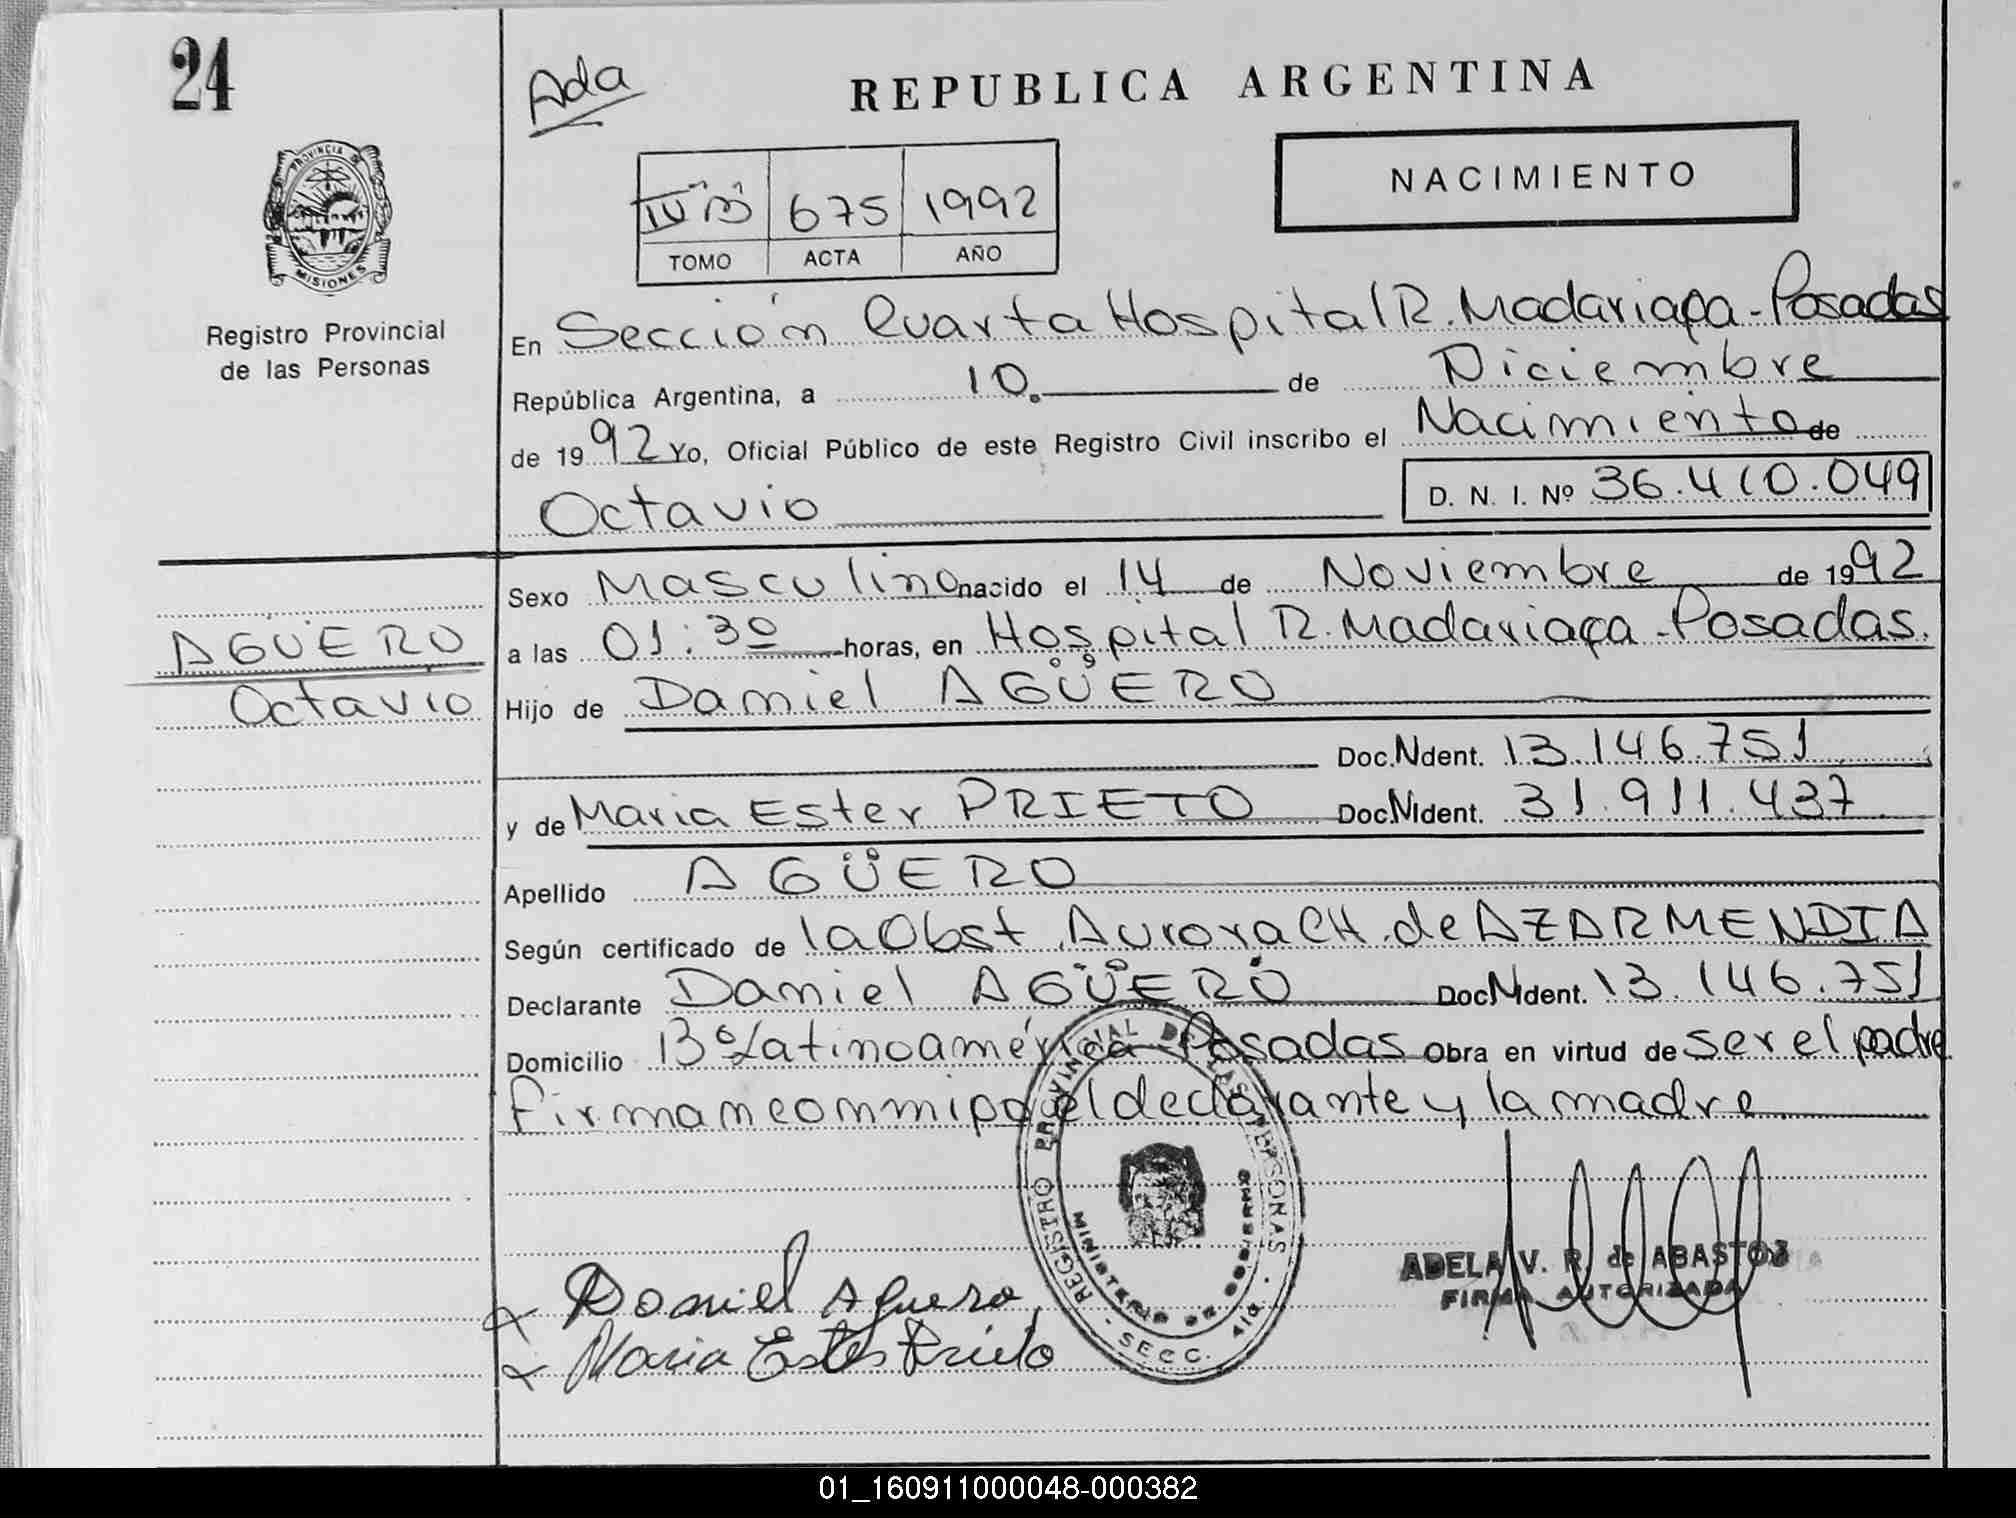 24
Ada
REPUBLICA ARGENTINA
NACIMIENTO
IVº B 675 1992
TOMO ACTA AÑO
PROVINCIA DE MISIONES
Registro Provincial
de las Personas
En Sección Cuarta Hospital R. Madariaga - Posadas
República Argentina, a 10. de Diciembre
de 1992 Yo, Oficial Público de este Registro Civil inscribo el Nacimiento de
Octavio
D. N. I. Nº 36.410.049
AGÜERO
Octavio
Sexo Masculino nacido el 14 de Noviembre de 1992
a las 01:30 horas, en Hospital R. Madariaga - Posadas.
Hijo de Daniel AGÜERO
Doc. N Ident. 13.146.751
y de Maria Ester PRIETO Doc. N Ident. 31.911.437
Apellido AGÜERO
Según certificado de la Obst Aurora CH. de AZARMENDIA
Declarante Daniel AGÜERO Doc N Ident. 13.146.751
Domicilio Bº Latinoamérica - Posadas Obra en virtud de ser el padre
Firman conmigo el declarante y la madre
REGISTRO PROVINCIAL DE LAS PERSONAS
MINISTERIO DE GOBIERNO
SECC. 4ta.
Daniel Aguero
Maria Ester Prieto
ADELA V. R. de ABASTOS
FIRMA AUTORIZADA
01_160911000048-000382